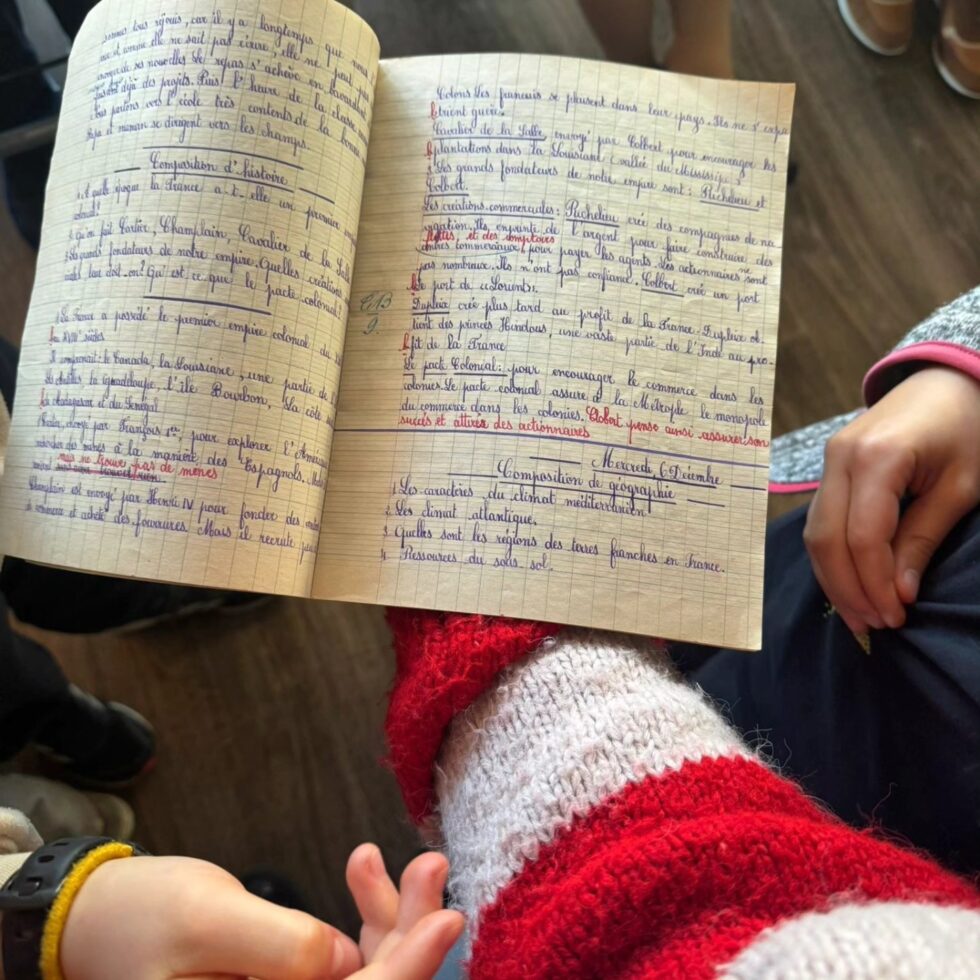 sommes tous réjouis, car il y a longtemps que nous
et comme elle ne sait pas écrire, elle ne peut pas
de ses nouvelles. Le repas s'achève en bavardant
déjà des projets. Puis l'heure de la classe
Nous partons vers l'école très contents de la bonne
Papa et maman se dirigent vers les champs.
Composition d'histoire
1 A quelle époque la France a-t-elle un premier
colonial?
Qu'on fait Cartier, Champlain, Cavalier de la Salle
grands fondateurs de notre empire. Quelles créations
leur doit-on? Qu'est ce que le pacte colonial?
1 La France a possédé le premier empire colonial du
XVIII siècles
Il comprenait: le Canada, la Louisiane, une partie de
les Antilles la guadeloupe, l'île Bourbon, La côte
Madagascar et du Sénégal
envoyé par François 1er, pour explorer l'Amérique
des mines à la manière des Espagnols. Mais
mais ne trouve pas de mines
Champlain est envoyé par Henri IV pour fonder des
commerce et acheté des fourrures. Mais il recrute peu
Colons Les français se plaisent dans leur pays. Ils ne s'expa
trient guère.
Cavalier de la Salle, envoyé par Colbert pour encourager les
plantations dans la Louisiane (vallée du Mississipi.)
2 Les grands fondateurs de notre empire sont: Richelieu et
Colbert.
Les créations commerciales: Richelieu crée des compagnies de na
vigation. Ils, emprunte de l'argent pour faire construire des
flottes, et des comptoirs
centres commerciaux, pour payer les agents. Les actionnaires ne sont
pas nombreux. Ils n'ont pas confiance. Colbert crée un port
le port de «Lorient».
Dupleix crée plus tard au profit de la France. Dupleix ob
tient des princes Hindous, une vaste partie de l'Inde au pro-
fit de la France
Le pacte Colonial: pour encourager le commerce dans les
colonies. Le pacte colonial assure à la Métropole le monopole
du commerce dans les colonies. Colbert pense ainsi assurer son
succès et attirer des actionnaires
Mercredi 6 Décembre
Composition de géographie
1 Les caractères du climat méditerranéen
2 Les climat atlantique.
3 Quelles sont les régions des terres franches en France.
4 Ressources du sous sol.